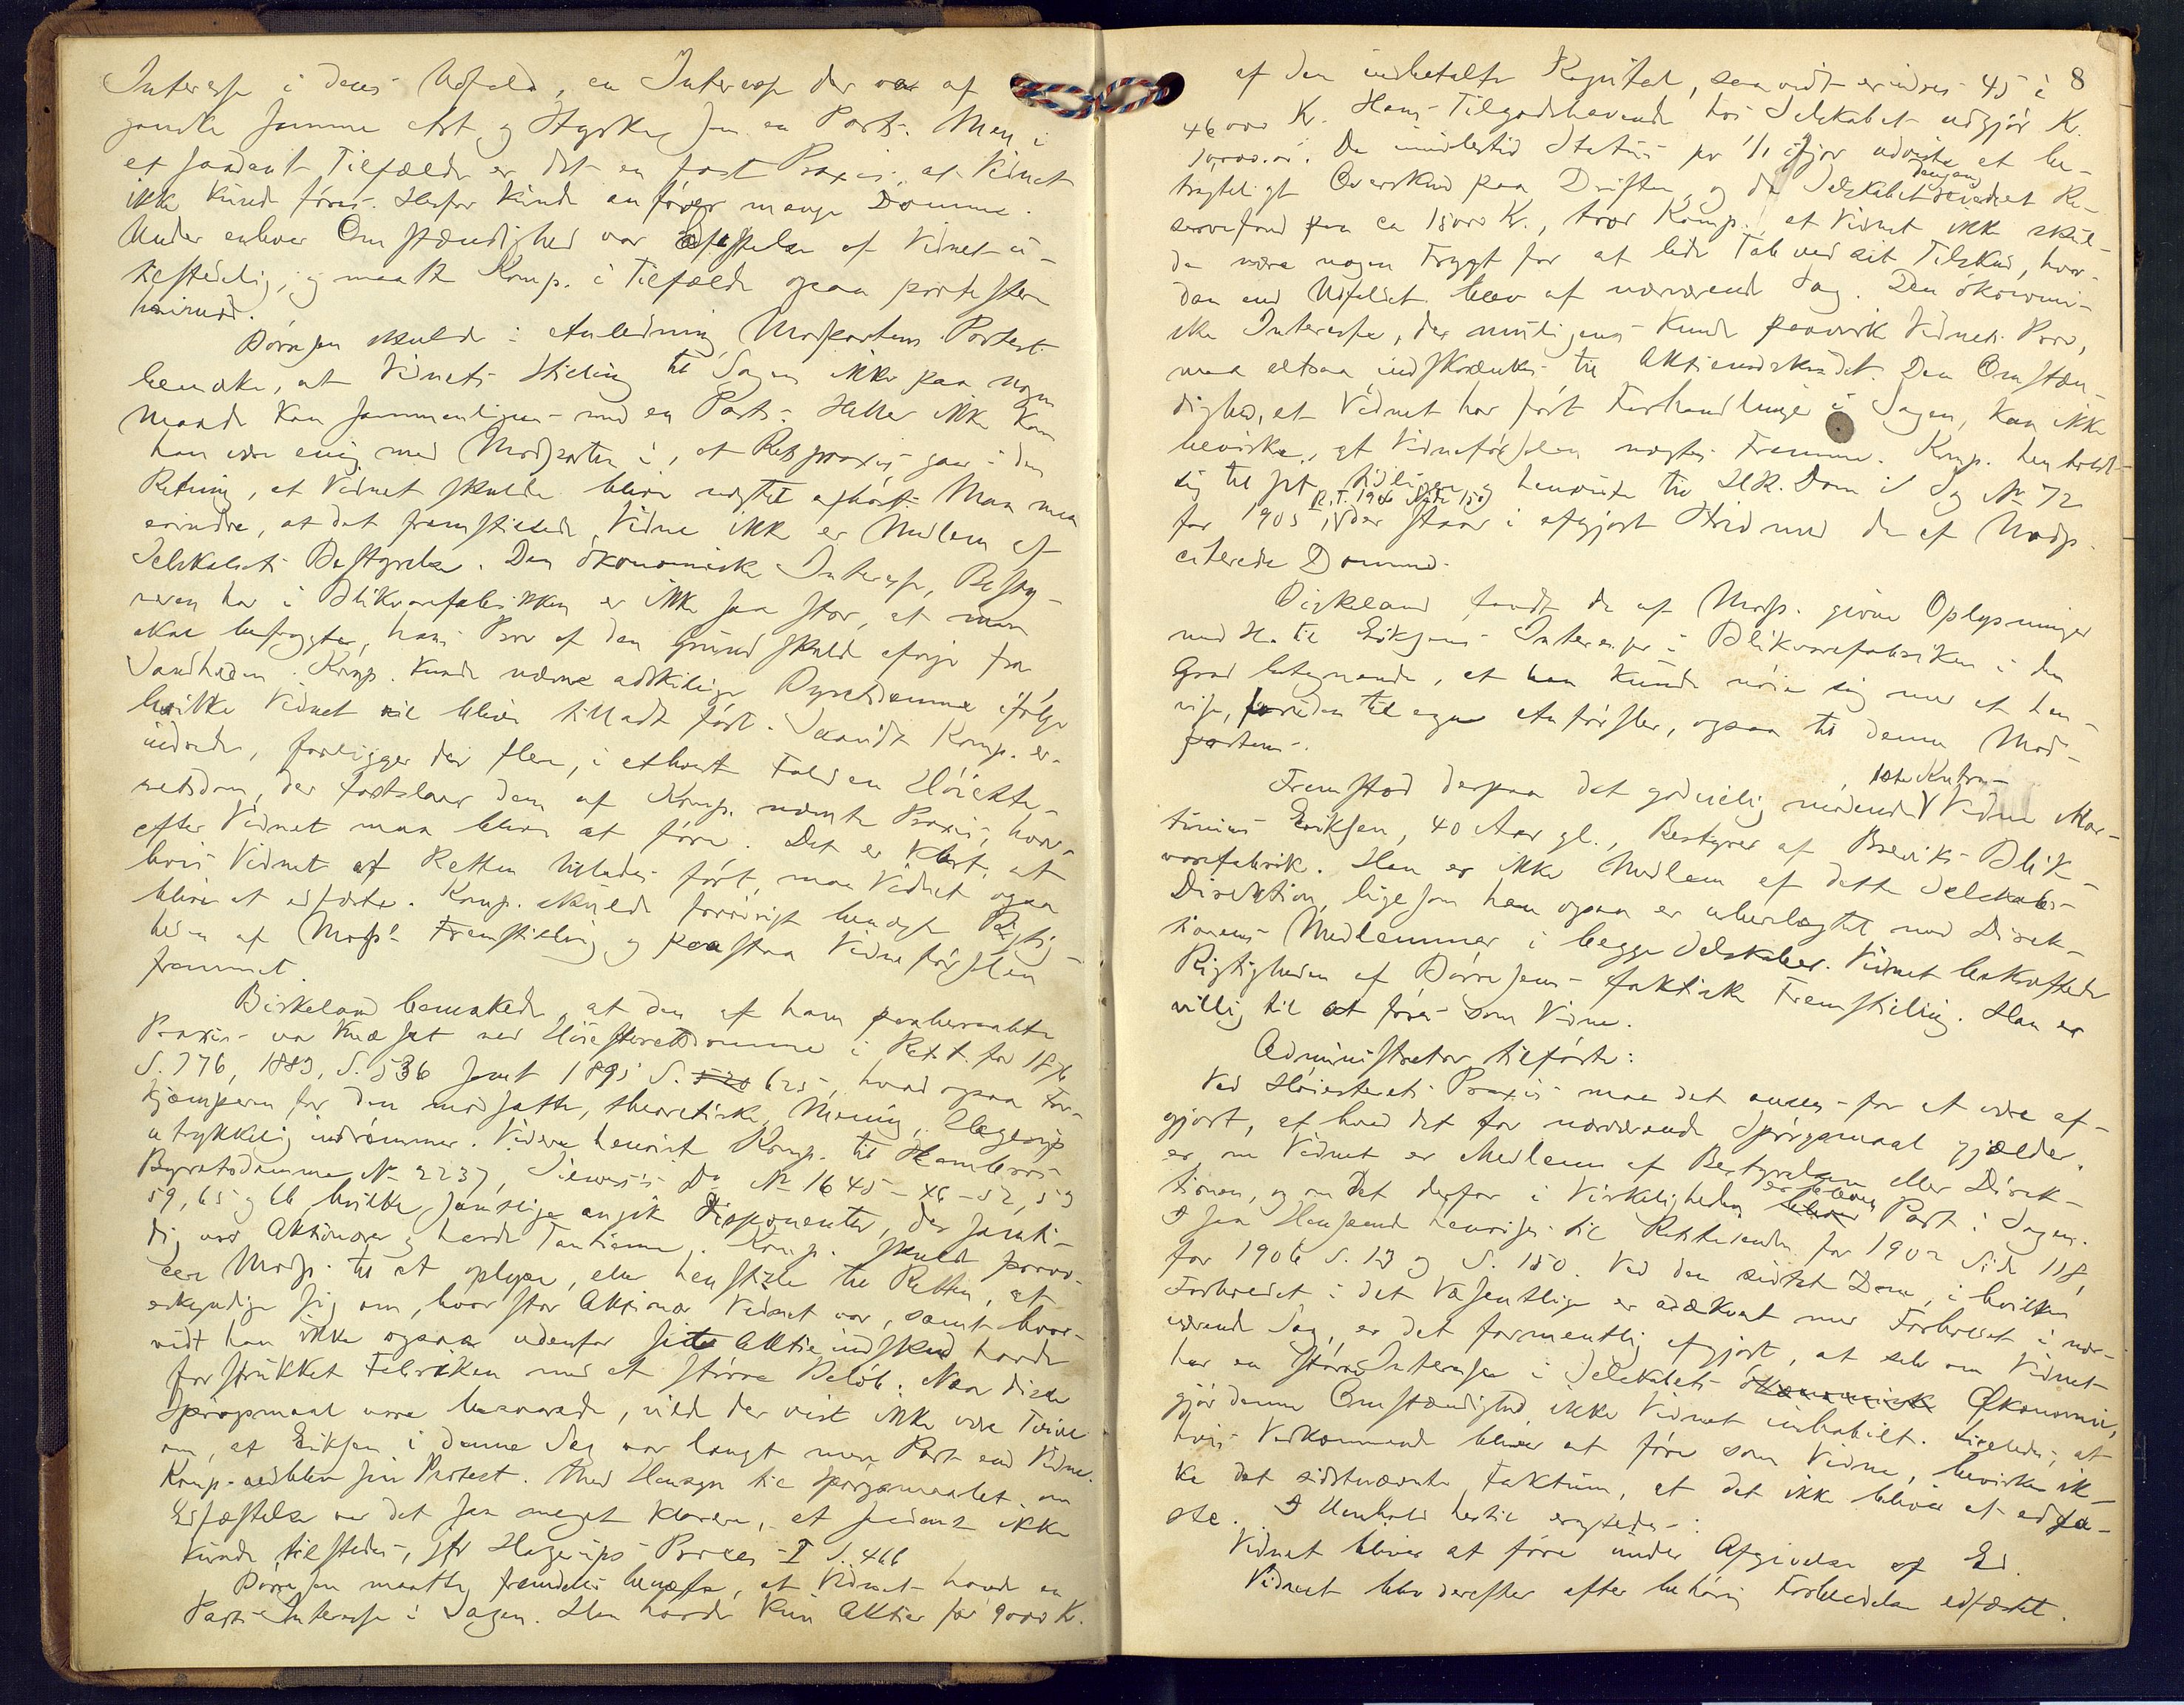 Interesse i dens Udfald, en Interesse der var af
ganske samme Art og Styrke som en Parts. Men i
et saadant Tilfælde er det en fast Praxis, at Vidnet
ikke kunde føres. Herfor kunde anføres mange Domme.
Under enhver Omstændighed var Edfæstelse af Vidnet u-
tilstedelig, og maatte Komp. i Tilfælde ogsaa protestere
herimod.
Børresen skulde i Anledning Modpartens Protest
bemærke, at Vidnets Stilling til Sagen ikke paa nogen
Maade kan sammenlignes med en Parts. Heller ikke kan
han være enig med Modparten i, at Retspraxis gaar i den
Retning, at Vidnet skulde blive nægtet afhørt. Man maa
erindre, at det fremstillede Vidne ikke er Medlem af
Selskabets Bestyrelse. Den økonomiske Interesse, Besty-
reren har i Blikvarefabrikken er ikke saa stor, at man
skal befrygte, hans Prov af den Grund skulde afvige fra
Sandheden. Komp. kunde nævne adskillige Byretsdomme ifølge
hvilke Vidnet vil blive tilladt ført. Saavidt Komp. er-
indrede, foreligger der flere, i ethvert Fald en Høieste-
retsdom, der fastslaar den af Komp. nævnte Praxis, hvor-
efter Vidnet maa blive at føre. Det er klart, at
hvis Vidnet af Retten tillades ført, maa Vidnet ogsaa
blive at edfæste. Komp. skulde forøvrigt benægte Rigtig-
heden af Modp.s Fremstilling og paastaa Vidneførslen
fremmet.
Birkeland bemærkede, at den af ham paaberaabte
Praxis var knæsat ved Høiesteretsdomme i Rett. for 1876
S. 776, 1883, S. 536 samt 1895 S. 520 625, hvad ogsaa For-
kjæmperen for den modsatte, theoretiske Mening, Hagerup
utrykkelig indrømmer. Videre henviste Komp. til Hambros
Byretsdomme No 2237, Siewers's Do No 1645-46-52, 53
59, 65 og 66, hvilke samtlige angik Disponenter, der samti-
dig var Aktionærer og havde Tantieme. Komp. skulde provo-
cere Modp. til at oplyse, eller henstille til Retten, at
erkyndige sig om, hvor stor Aktionær Vidnet var, samt hvor-
vidt han ikke ogsaa udenfor sit Aktieindskud havde
forstrukket Fabrikken med et større Beløb. Naar disse
Spørgsmaal være besvarede, vilde der vist ikke være Tvivl
om, at Eriksen i denne Sag var langt mere Part end Vidne.
Komp. vedblev sin Protest. Med Hensyn til Spørgsmaalet om
Edfæstelse var det saa meget klarere, at saadant ikke
kunde tilstedes, jfr Hagerups Proces I S. 466
Børresen maatte fremdeles benægte, at Vidnet havde en
Parts Interesse i Sagen. Han havde kun Aktier for 9000 Kr.
8
af den indbetalte Kapital, saavidt erindres 45 à
46 000 Kr. Hans Tilgodehavende hos Selskabet udgjør Kr.
10,000.00. Da imidlertid Status pr 1/1 ifjor udviste et be-
tragteligt Overskud paa Driften, og da Selskabet dengang havde et Re-
servefond paa ca 15000 Kr., tror Komp. at Vidnet ikke skul-
de nære nogen Frygt for at lide Tab ved sit Tilskud, hvor-
dan end Udfaldet blev af nærværende Sag. Den økonomi-
ske Interesse, der muligens kunde paavirke Vidnets Prov,
maa altsaa indskrænkes til Aktieindskudet. Den Omstæn-
dighed, at Vidnet har ført Forhandlinger i Sagen, kan ikke
bevirke, at Vidneførslen nægtes Fremme. Komp. henholdt
sig til sit tidligere og henviste til H.R. Dom i Sag No 72
for 1905 (R.T. 1906 Side 150) der staar i afgjort Strid med de af Modp.
citerede Domme.
Birkeland fandt de af Modp. givne Oplysninger
med H. til Eriksens Interesser i Blikvarefabriken i den
Grad betegnende, at han kunde nøie sig med at hen-
vise, foruden til egne Anførsler, ogsaa til denne Mod-
partens.
Fremstod derpaa det godvillig mødende 1ste Kontra- Vidne Mar-
tinius Eriksen, 40 Aar gl., Bestyrer af Breviks Blik-
varefabrik. Han er ikke Medlem af dette Selskabs
Direktion, ligesom han ogsaa er ubeslægtet med Direk-
tionens Medlemmer i begge Selskaber. Vidnet bekræftede
Rigtigheden af Børresens faktiske Fremstilling. Han er
villig til at føres som Vidne.
Administrator tilførte:
Ved Høiesterets Praxis maa det ansees for at være af-
gjort, at hvad det for nærværende Spørgsmaal gjælder,
er om Vidnet er Medlem af Bestyrelsen eller Direk-
tionen, og om det derfor i Virkeligheden bliver er selve Part i Sagen.
I saa Henseende henvises til Rettstidende for 1902 Side 118,
for 1906 S. 13 og S. 150. Ved den sidste Dom, i hvilken
Forholdet i det Væsentlige er adækvat med Forholdet i nær-
værende Sag, er det formentlig afgjort, at selv om Vidnet
har en større Interesse i Selskabets økonomiske Økonomi,
gjør denne Omstændighed ikke Vidnet inhabilt. Ligeledes, at
hvis Vedkommende bliver at føre som Vidne, bevirker ik-
ke det sidstnævnte Faktum, at det ikke bliver at edfæ-
ste. I Henhold hertil eragtedes:
Vidnet bliver at føre under Afgivelse af Ed.
Vidnet blev derefter efter behørig Forberedelse edfæstet.